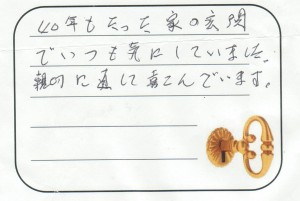 40年もたった家の玄関
でいつも気にしていました。
親切に直して喜こんでいます。